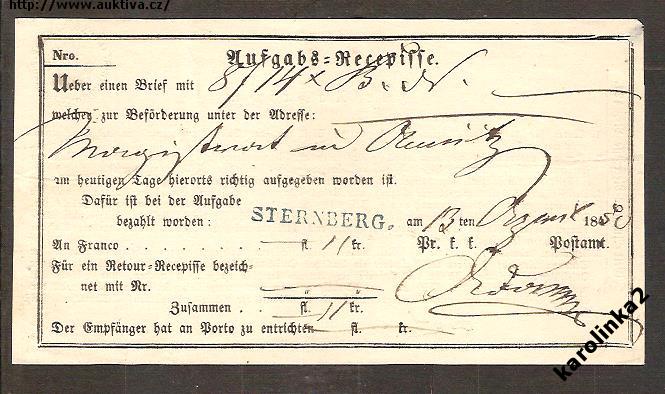 http://www.auktiva.cz/
Nro. Aufgabs-Recepisse.
Ueber einen Brief mit 8/14 x B. N.
welchen zur Beförderung unter der Adresse:
Magistrat in
am heutigen Tage hierorts richtig aufgegeben worden ist.
Dafür ist bei der Aufgabe
bezahlt worden:
STERNBERG. am 13 ten 18
An Franco . . . . . . . . fl. 11 kr. Pr. k. k. Postamt.
Für ein Retour-Recepisse bezeich-
net mit Nr.
Zusammen . . fl. 11 kr.
Der Empfänger hat an Porto zu entrichten fl. kr.
karolinka2